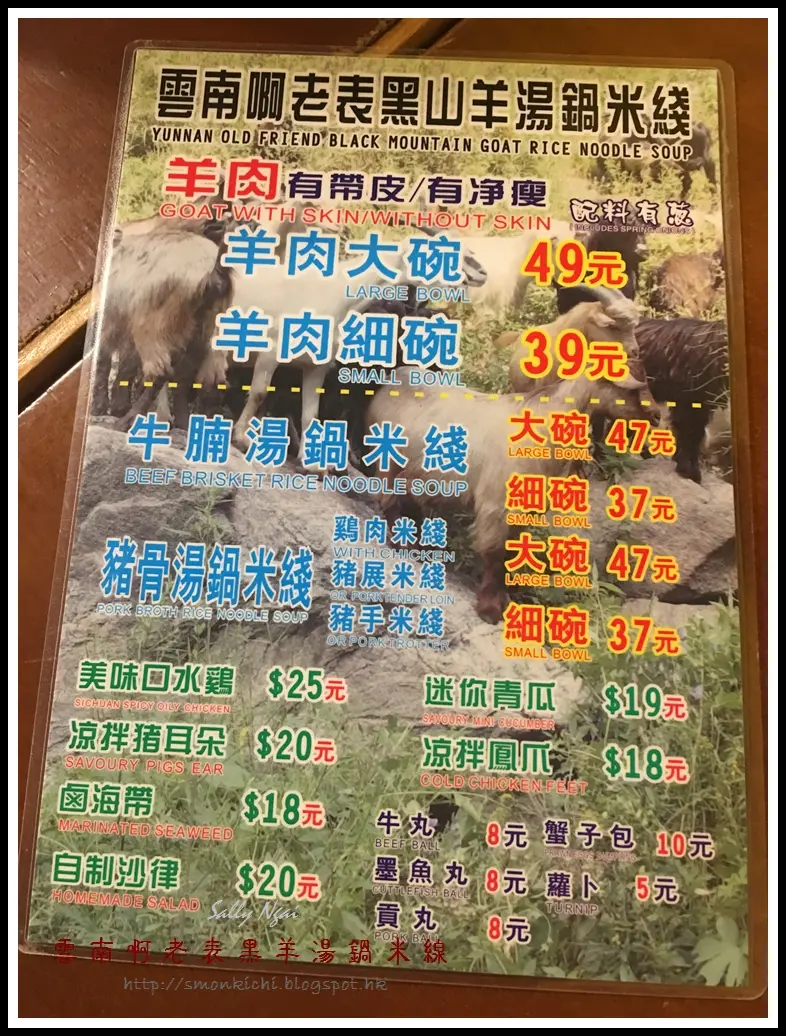 雲南啊老表黑山羊湯鍋米綫
YUNNAN OLD FRIEND BLACK MOUNTAIN GOAT RICE NOODLE SOUP
羊肉 有帶皮/有净瘦 配料有蔥
GOAT WITH SKIN/WITHOUT SKIN (INCLUDES SPRING ONIONS)
羊肉大碗 49元
LARGE BOWL
羊肉細碗 39元
SMALL BOWL
牛腩湯鍋米綫 大碗 47元
BEEF BRISKET RICE NOODLE SOUP LARGE BOWL
細碗 37元
SMALL BOWL
豬骨湯鍋米綫
PORK BROTH RICE NOODLE SOUP
雞肉米綫
WITH CHICKEN
豬展米綫
OR PORK TENDERLOIN
豬手米綫
OR PORK TROTTER
大碗 47元
LARGE BOWL
細碗 37元
SMALL BOWL
美味口水鷄 $25元
SICHUAN SPICY OILY CHICKEN
凉拌猪耳朵 $20元
SAVOURY PIGS EAR
鹵海帶 $18元
MARINATED SEAWEED
自制沙律 $20元
HOMEMADE SALAD
迷你青瓜 $19元
SAVOURY MINI CUCUMBER
凉拌鳳爪 $18元
COLD CHICKEN FEET
牛丸 8元
BEEF BALL
墨魚丸 8元
CUTTLEFISH BALL
貢丸 8元
PORK BALL
蟹子包 10元
蘿卜 5元
TURNIP
Sally Ngai
雲南啊老表黑羊湯鍋米線
http://smonkichi.blogspot.hk